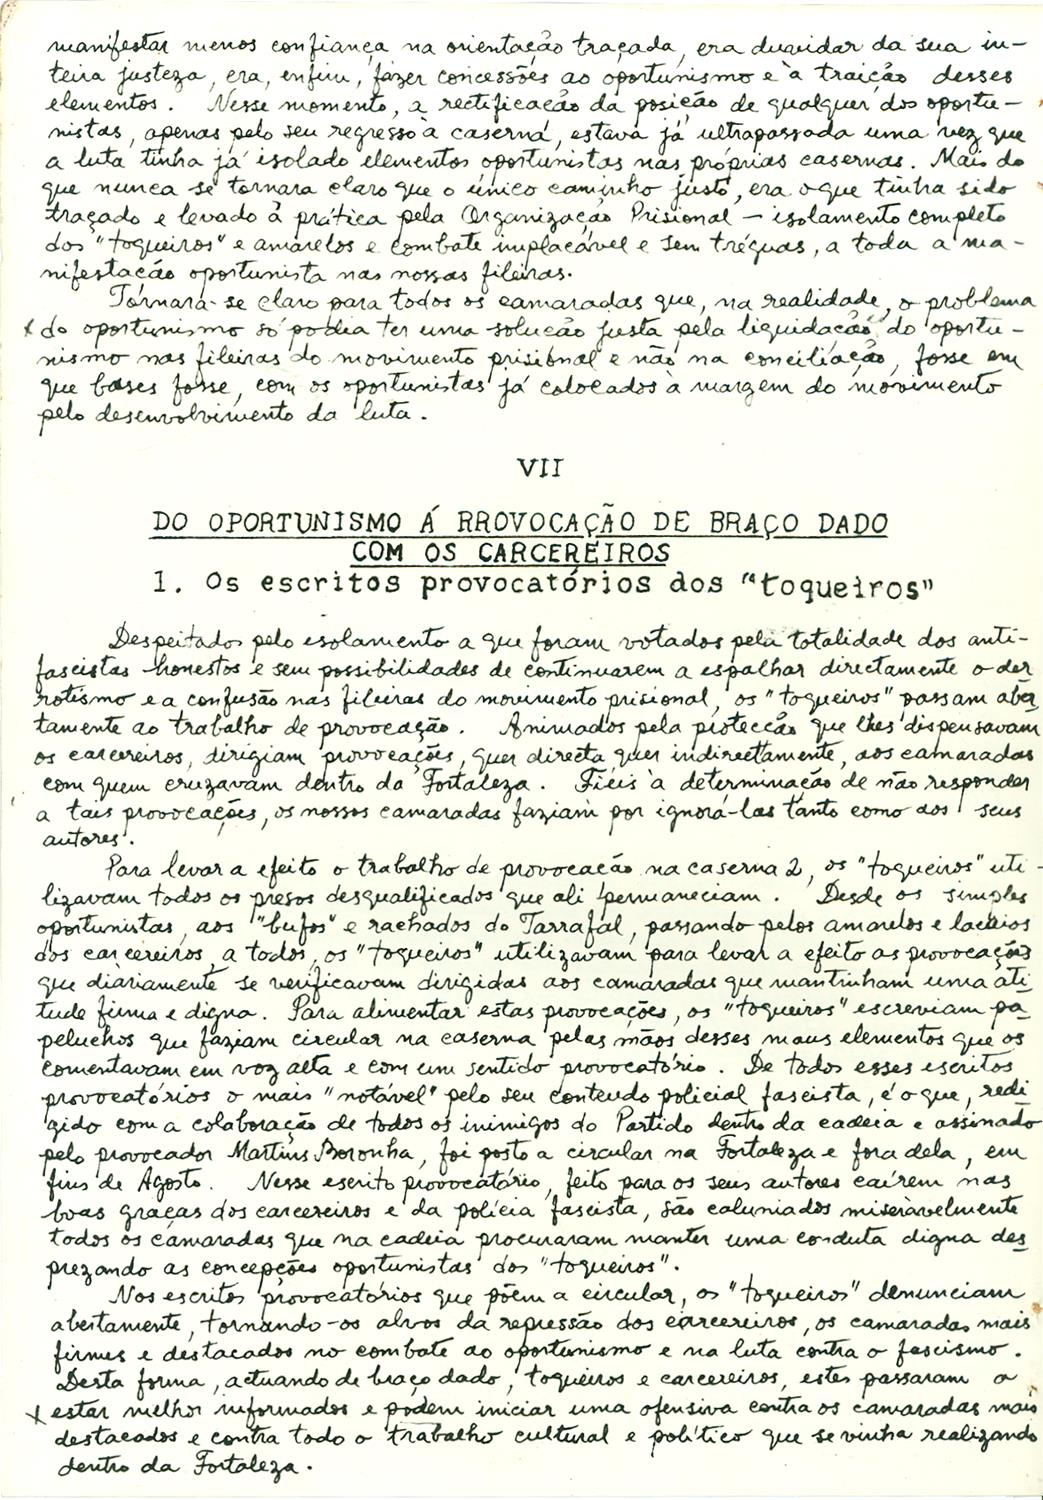 manifestar menos confiança na orientação traçada, era duvidar da sua in-
teira justeza, era, enfim, fazer concessões ao oportunismo e à traição desses
elementos. Nesse momento, a rectificação da posição de qualquer dos oportu-
nistas, apenas pelo seu regresso à caserna, estava já ultrapassada uma vez que
a luta tinha já isolado elementos oportunistas nas próprias casernas. Mais do
que nunca se tornara claro que o único caminho justo, era o que tinha sido
traçado e levado à prática pela Organização Prisional — isolamento completo
dos "toqueiros" e amarelos e combate implacável e sem tréguas, a toda a ma-
nifestação oportunista nas nossas fileiras.
Tornara-se claro para todos os camaradas que, na realidade, o problema
x do oportunismo só podia ter uma solução justa pela liquidação do oportu-
nismo nas fileiras do movimento prisional e não na conciliação, fosse em
que bases fosse, com os oportunistas já colocados à margem do movimento
pelo desenvolvimento da luta.
VII
DO OPORTUNISMO Á RROVOCAÇÃO DE BRAÇO DADO
COM OS CARCEREIROS
1. Os escritos provocatórios dos "toqueiros"
Despeitados pelo isolamento a que foram votados pela totalidade dos anti-
fascistas honestos e sem possibilidades de continuarem a espalhar directamente o der
rotismo e a confusão nas fileiras do movimento prisional, os "toqueiros" passam aber
tamente ao trabalho de provocação. Animados pela protecção que lhes dispensavam
os carcereiros, dirigiam provocações, quer directa quer indirectamente, aos camaradas
com quem cruzavam dentro da Fortaleza. Fiéis à determinação de não responder
a tais provocações, os nossos camaradas faziam por ignorá-las tanto como aos seus
autores.
Para levar a efeito o trabalho de provocação na caserna 2, os "toqueiros" uti-
lizavam todos os presos desqualificados que ali permaneciam. Desde os simples
oportunistas, aos "bufos" e rachados do Tarrafal, passando pelos amarelos e lacaios
dos carcereiros, a todos, os "toqueiros" utilizavam para levar a efeito as provocações
que diàriamente se verificavam dirigidas aos camaradas que mantinham uma ati
tude firme e digna. Para alimentar estas provocações, os "toqueiros" escreviam pa
peluchos que faziam circular na caserna pelas mãos desses maus elementos que os
comentavam em voz alta e com um sentido provocatório. De todos esses escritos
provocatórios o mais "notável" pelo seu conteudo policial fascista, é o que, redi
gido com a colaboração de todos os inimigos do Partido dentro da cadeia e assinado
pelo provocador Martins Boronha, foi posto a circular na Fortaleza e fora dela, em
fins de Agosto. Nesse escrito provocatório, feito para os seus autores caírem nas
boas graças dos carcereiros e da polícia fascista, são caluniados miseràvelmente
todos os camaradas que na cadeia procuraram manter uma conduta digna des
prezando as concepções oportunistas dos "toqueiros".
Nos escritos provocatórios que põem a circular, os "toqueiros" denunciam
abertamente, tornando-os alvos da repressão dos carcereiros, os camaradas mais
firmes e destacados no combate ao oportunismo e na luta contra o fascismo.
Desta forma, actuando de braço dado, toqueiros e carcereiros, estes passaram a
x estar melhor informados e podem iniciar uma ofensiva contra os camaradas mais
destacados e contra todo o trabalho cultural e político que se vinha realizando
dentro da Fortaleza.